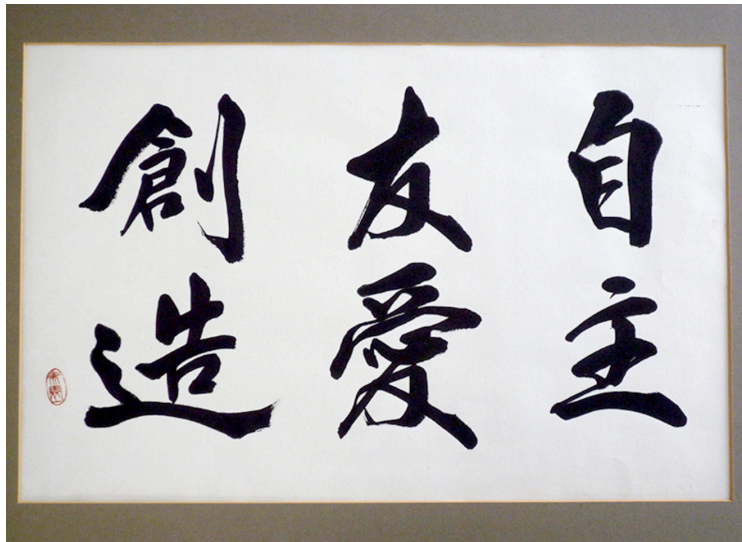 自主
友愛
創造